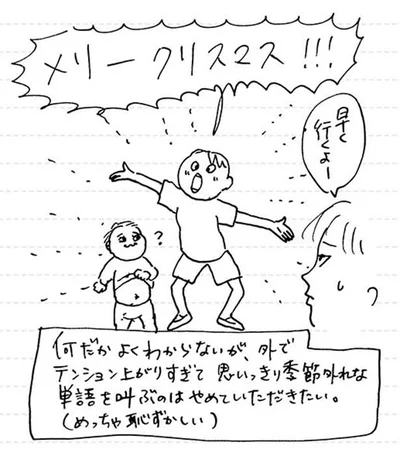 メリークリスマス!!!
早く
行くよー
?
何だかよくわからないが、外で
テンション上がりすぎて思いっきり季節外れな
単語を叫ぶのはやめていただきたい。
(めっちゃ恥ずかしい)